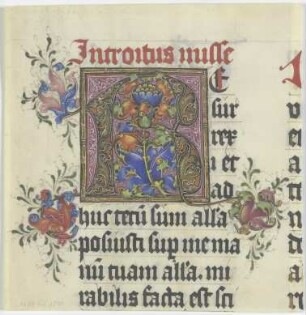 Introitus misse
E
sur
rex
i et
ad
huc tecū sum alła
posuisti sup me ma
nū tuam alła. mi
rabilis facta est sci